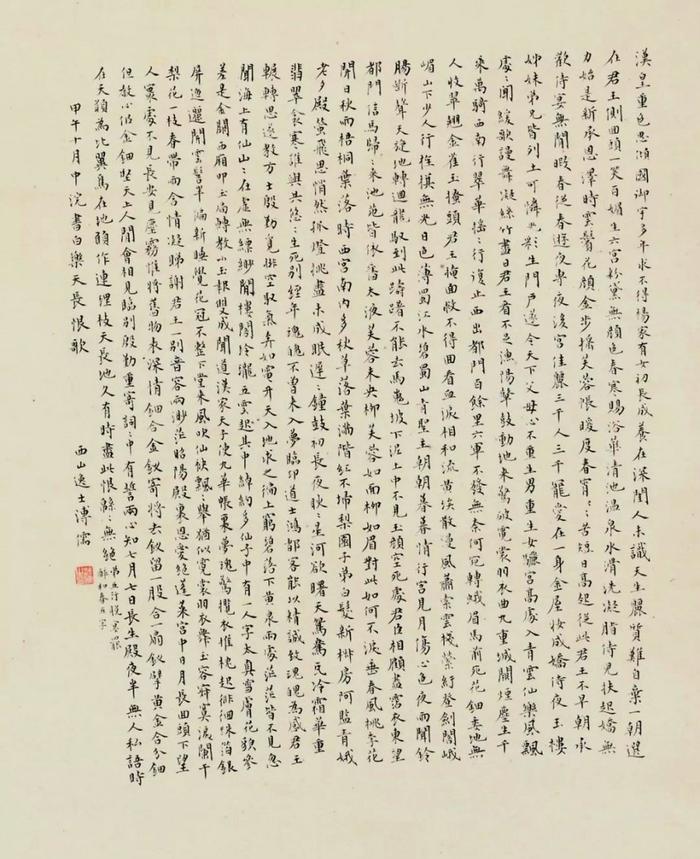 漢皇重色思傾國御宇多年求不得楊家有女初長成養在深閨人未識天生麗質難自棄一朝選
在君王側回頭一笑百媚生六宮粉黛無顏色春寒賜浴華清池溫泉水滑洗凝脂侍兒扶起嬌無
力始是新承恩澤時雲鬢花顏金步搖芙蓉帳暖度春宵〻苦短日高起從此君王不早朝承
歡侍宴無閒暇春從春遊夜專夜後宮佳麗三千人三千寵愛在一身金屋妝成嬌侍夜玉樓
姊妹弟兄皆列土可憐光彩生門戶遂令天下父母心不重生男重生女驪宮高處入青雲仙樂風飄
處〻聞緩歌謾舞凝絲竹盡日君王看不足漁陽鼙鼓動地來驚破霓裳羽衣曲九重城闕煙塵生千
乘萬騎西南行翠華搖〻行復止西出都門百餘里六軍不發無奈何宛轉蛾眉馬前死花鈿委地無
人收翠翹金雀玉搔頭君王掩面救不得回看血淚相和流黃埃散漫風蕭索雲棧縈紆登劍閣峨
嵋山下少人行旌旗無光日色薄蜀江水碧蜀山青聖主朝朝暮暮情行宮見月傷心色夜雨聞鈴
腸斷聲天旋地轉迴龍馭到此躊躇不能去馬嵬坡下泥土中不見玉顏空死處君臣相顧盡霑衣東望
都門信馬歸〻來池苑皆依舊太液芙蓉未央柳芙蓉如面柳如眉對此如何不淚垂春風桃李花
開日秋雨梧桐葉落時西宮南內多秋草落葉滿階紅不掃梨園子弟白髮新椒房阿監青娥
老夕殿螢飛思悄然孤燈挑盡未成眠遲〻鐘鼓初長夜耿〻星河欲曙天鴛鴦瓦冷霜華重
翡翠衾寒誰與共悠〻生死別經年魂魄不曾來入夢臨邛道士鴻都客能以精誠致魂魄為感君王
輾轉思遂教方士殷勤覓排空馭氣奔如電升天入地求之徧上窮碧落下黃泉兩處茫茫皆不見忽
聞海上有仙山〻在虛無縹緲間樓閣玲瓏五雲起其中綽約多仙子中有一人字太真雪膚花貌參
差是金闕西廂叩玉扃轉教小玉報雙成聞道漢家天子使九華帳裏夢魂驚攬衣推枕起徘徊珠箔銀
屏迤邐開雲髻半偏新睡覺花冠不整下堂來風吹仙袂飄〻舉猶似霓裳羽衣舞玉容寂寞淚闌干
梨花一枝春帶雨含情凝睇謝君王一別音容兩渺茫昭陽殿裏恩愛絕蓬萊宮中日月長回頭下望
人寰處不見長安見塵霧惟將舊物表深情鈿合金釵寄將去釵留一股合一扇釵擘黃金合分鈿
但教心似金鈿堅天上人間會相見臨別殷勤重寄詞〻中有誓兩心知七月七日長生殿夜半無人私語時
在天願為比翼鳥在地願作連理枝天長地久有時盡此恨緜〻無絕
第五行脫宴罷
醉和春五字
甲午十月中浣書白樂天長恨歌
西山逸士溥儒